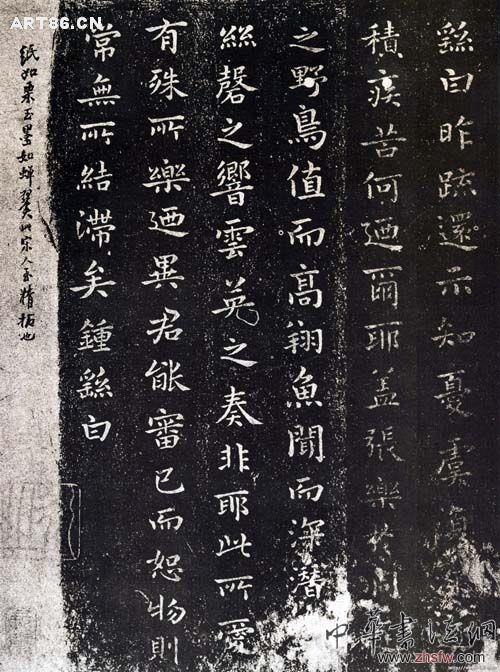 繇白昨踈還示知憂虞復深
積疾苦何迺爾耶盖張樂於洞
之野鳥值而高翔魚聞而深潛
絲磬之響雲英之奏非耶此所愛
有殊所樂迺異君能審己而恕物則
常無所結滯矣鍾繇白
紙如栗玉墨如蟬翼此宋人至精拓也
ART86.CN
中华书法网
www.zhsfw.com